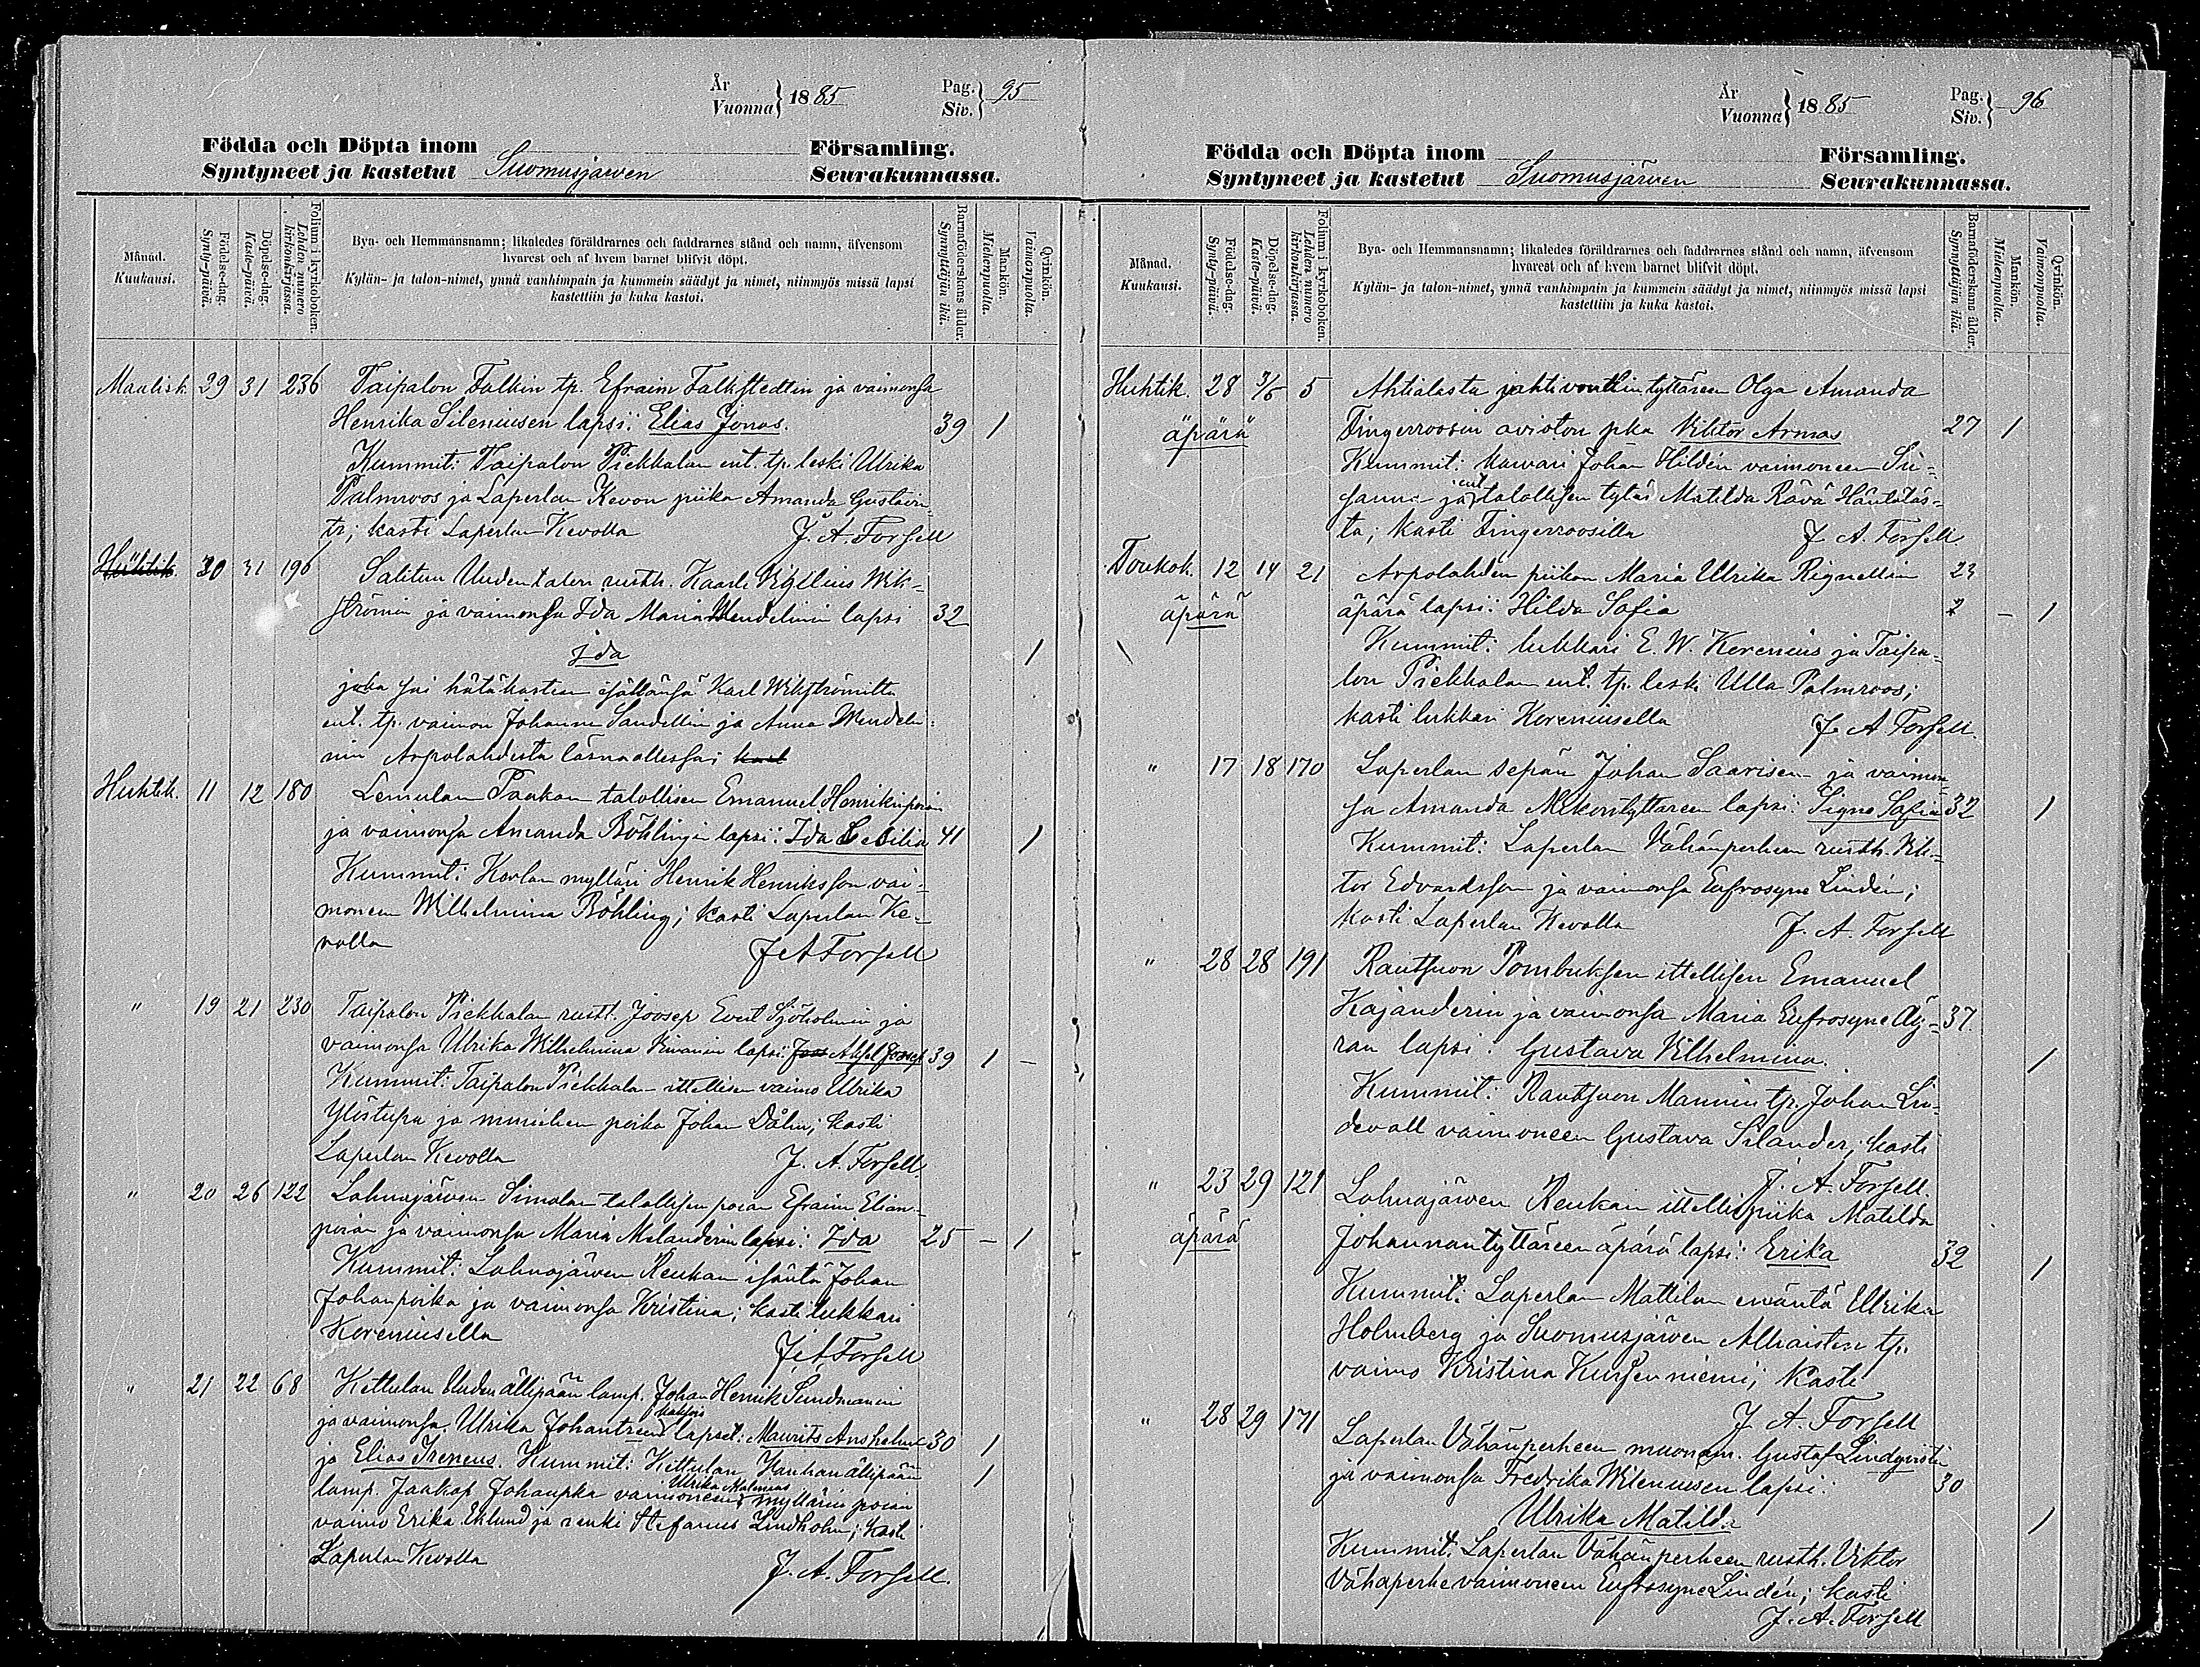 År
Vuonna } 1885 Pag.
Siv. } 95
Födda och Döpta inom Församling.
Syntyneet ja kastetut Suomusjärven Seurakunnassa.
Månad.
Kuukausi.
Födelse-dag.
Synty-päivä.
Döpelse-dag.
Kaste-päivä.
Folium i kyrkoboken.
Lehden numero kirkonkirjassa.
Bya- och Hemmansnamn; likaledes föräldrarnes och faddrarnes stånd och namn, äfvensom
hvarest och af hvem barnet blifvit döpt.
Kylän- ja talon-nimet, ynnä vanhimpain ja kummein säädyt ja nimet, niinmyös missä lapsi
kastettiin ja kuka kastoi.
Barnaföderskans ålder.
Synnyttäjän ikä.
Mankön.
Miehenpuolia.
Qvinkön.
Vaimonpuolia.
Maalisk. 29 31 236 Taipalon Falkin tp. Efraim Falkstedtin ja vaimonsa
Henrika Sileniusen lapsi: Elias Jonas. 39 1
Kummit: Taipalon Piekkalan ent. tp. leski Ulrika
Palmroos ja Laperlan Kevon piika Amanda Gustavin
tr; kasti Laperlan Kevolla J. A. Forsell
Huhtik. 30 31 196 Salitun Uudentalon rusth. Kaarle Wik-
strömin ja vaimonsa Ida Maria Wendelinin lapsi 32
Ida 1
joka sai hätäkasteen isältänsä Karl Wikströmiltä
ent. tp. vaimon Johanna Sandellin ja Anna Wendeli-
nin Arpolahdesta läsnäollessa;
Huhtik. 11 12 180 Lemulan Paukan talollisen Emanuel Henrikinpoian
ja vaimonsa Amanda Böhlingin lapsi: Ida Cecilia 41 1
Kummit: Korlan mylläri Henrik Henriksson vai-
moneen Wilhelmina Böhling; kasti Laperlan Ke-
volla J A Forsell
" 19 21 230 Taipalon Piekkalan rustt. Joosep Evert Sjöholmin ja
vaimonsa Ulrika Wilhelmina lapsi: Aksel Josef 39 1 –
Kummit: Taipalon Piekkalan ittellisen vaimo Ulrika
Ylöstupa ja muukon poika Johan Dålin; kasti
Laperlan Kevolla J. A. Forsell.
" 20 26 122 Lahnajärven Simolan talollisen poian Efraim Elian-
poian ja vaimonsa Maria Melanderin lapsi: Ida 25 – 1
Kummit: Lahnajärven Reukan isäntä Johan
Johanpoika ja vaimonsa Kristina; kasti lukkari
Koreniusella J A Forsell
" 21 22 68 Kettulan Uudenällipään lamp. Johan Henrik Sundmanin
kaksois
ja vaimonsa Ulrika Johantreen lapset: Maurits Anshelm 30 1
ja Elias Ireneus. Kummit: Kettulan Vanhanällipään 1
Ulrika Malenius
lamp. Jaakop Johanpka vaimoneen; myllärin poian
vaimo Erika Eklund ja renki Stefanus Lindholm; kasti
Laperlan Kevolla
J. A. Forsell.
År
Vuonna } 1885 Pag.
Siv. } 96
Födda och Döpta inom Församling.
Syntyneet ja kastetut Suomusjärven Seurakunnassa.
Månad.
Kuukausi.
Födelse-dag.
Synty-päivä.
Döpelse-dag.
Kaste-päivä.
Folium i kyrkoboken.
Lehden numero kirkonkirjassa.
Bya- och Hemmansnamn; likaledes föräldrarnes och faddrarnes stånd och namn, äfvensom
hvarest och af hvem barnet blifvit döpt.
Kylän- ja talon-nimet, ynnä vanhimpain ja kummein säädyt ja nimet, niinmyös missä lapsi
kastettiin ja kuka kastoi.
Barnaföderskans ålder.
Synnyttäjän ikä.
Mankön.
Miehenpuolia.
Qvinkön.
Vaimonpuolia.
Huhtik. 28 3/5 5 Ahtialasta jahtivoutin tyttären Olga Amanda
äpärä Fingerroosin avioton pka Viktor Armas 27 1
Kummit: Johan Hildén vaimoneen Su-
ent
sanna ja talollisen tytär Matilda Rävä Häntäläs-
ta; kasti Fingerroosilla J A. Forsell
Toukok. 12 14 21 Arpolahden piikan Maria Ulrika Rignellin 23
äpärä äpärä lapsi: Hilda Sofia – 1
Kummit: lukkari E. W. Korenius ja Taipa-
lon Piekkalan ent. tp. leski Ulla Palmroos;
kasti lukkari Koreniusella J. A Forsell.
" 17 18 170 Laperlan sepän Johan Saarisen ja vaimon-
sa Amanda Mikontyttären lapsi: Signe Sofia 32 1
Kummit: Laperlan Vähänperheen rusth. Vik-
tor Edvardsson ja vaimonsa Eufrosyne Lindén;
kasti Laperlan Kevolla J. A. Forsell
" 28 28 191 Rautsuon Pombuksen ittellisen Emanuel
Kajanderin ja vaimonsa Maria Eufrosyne Äy- 37
rän lapsi: Gustava Vilhelmina. 1
Kummit: Rautsuon Mannin tp. Johan Lin-
devall vaimoneen Gustava Silander; kasti
J. A. Forsell.
" 23 29 121 Lahnajärven Reukan ittellispiika Matilda
äpärä Johannantyttären äpärä lapsi: Erika 32 1
Kummit: Laperlan Mattilan emäntä Ulrika
Holmberg ja Suomusjärven Alhaisten tp.
vaimo Kristina Kuusenniemi; kasti
J A. Forsell
" 28 29 171 Laperlan Vähänperheen muonam. Gustaf Lindqvistin
ja vaimonsa Fredrika Wileniusen lapsi: 30
Ulrika Matilda 1
Kummit: Laperlan Vähänperheen rusth. Viktor
Vähäperhe vaimoneen Eufrosyne Lindén; kasti
J. A. Forsell